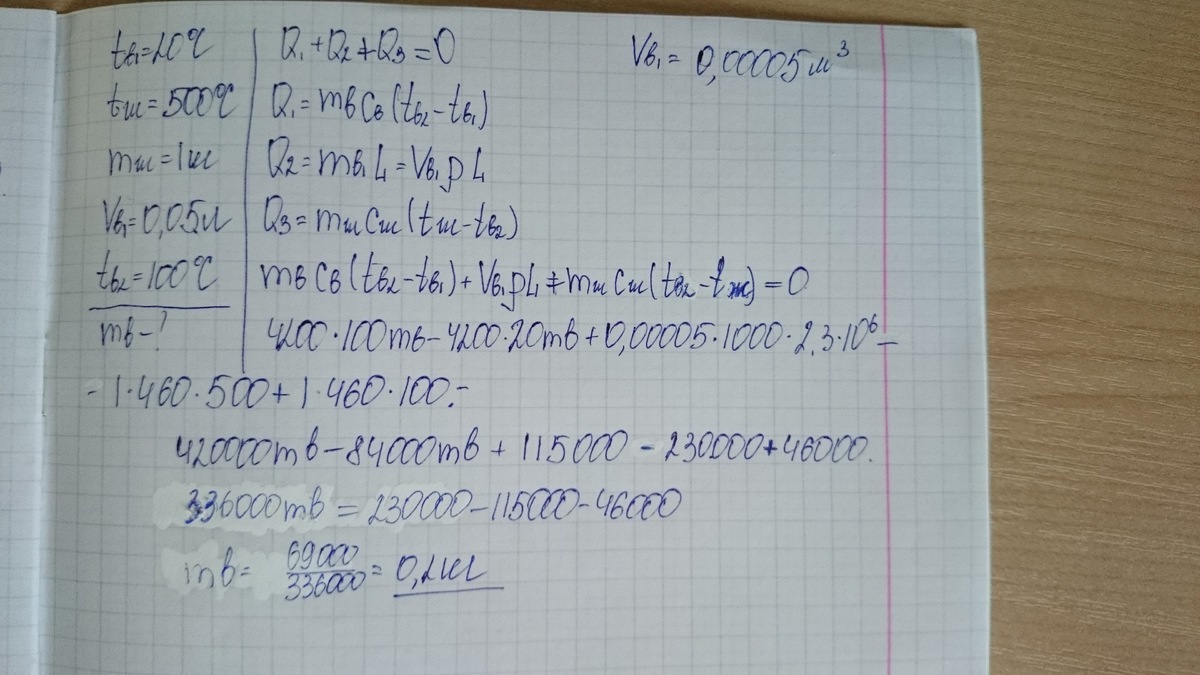 tв₁=20℃
tж=500℃
mж=1кг
Vв₁=0,05л
tв₂=100℃
mв-?
Q₁+Q₂+Q₃=0
Q₁=mвCв(tв₂-tв₁)
Q₂=mв₁L=Vв₁ρL
Q₃=mжCж(tж-tв₂)
mвCв(tв₂-tв₁)+Vв₁ρL+mжCж(tв₂-tж)=0
4200·100mв-4200·20mв+0,00005·1000·2,3·10⁶-
-1·460·500+1·460·100=
420000mв-84000mв+115000-230000+46000.
336000mв=230000-115000-46000
mв=69000/336000=0,2кг
Vв₁=0,00005м³